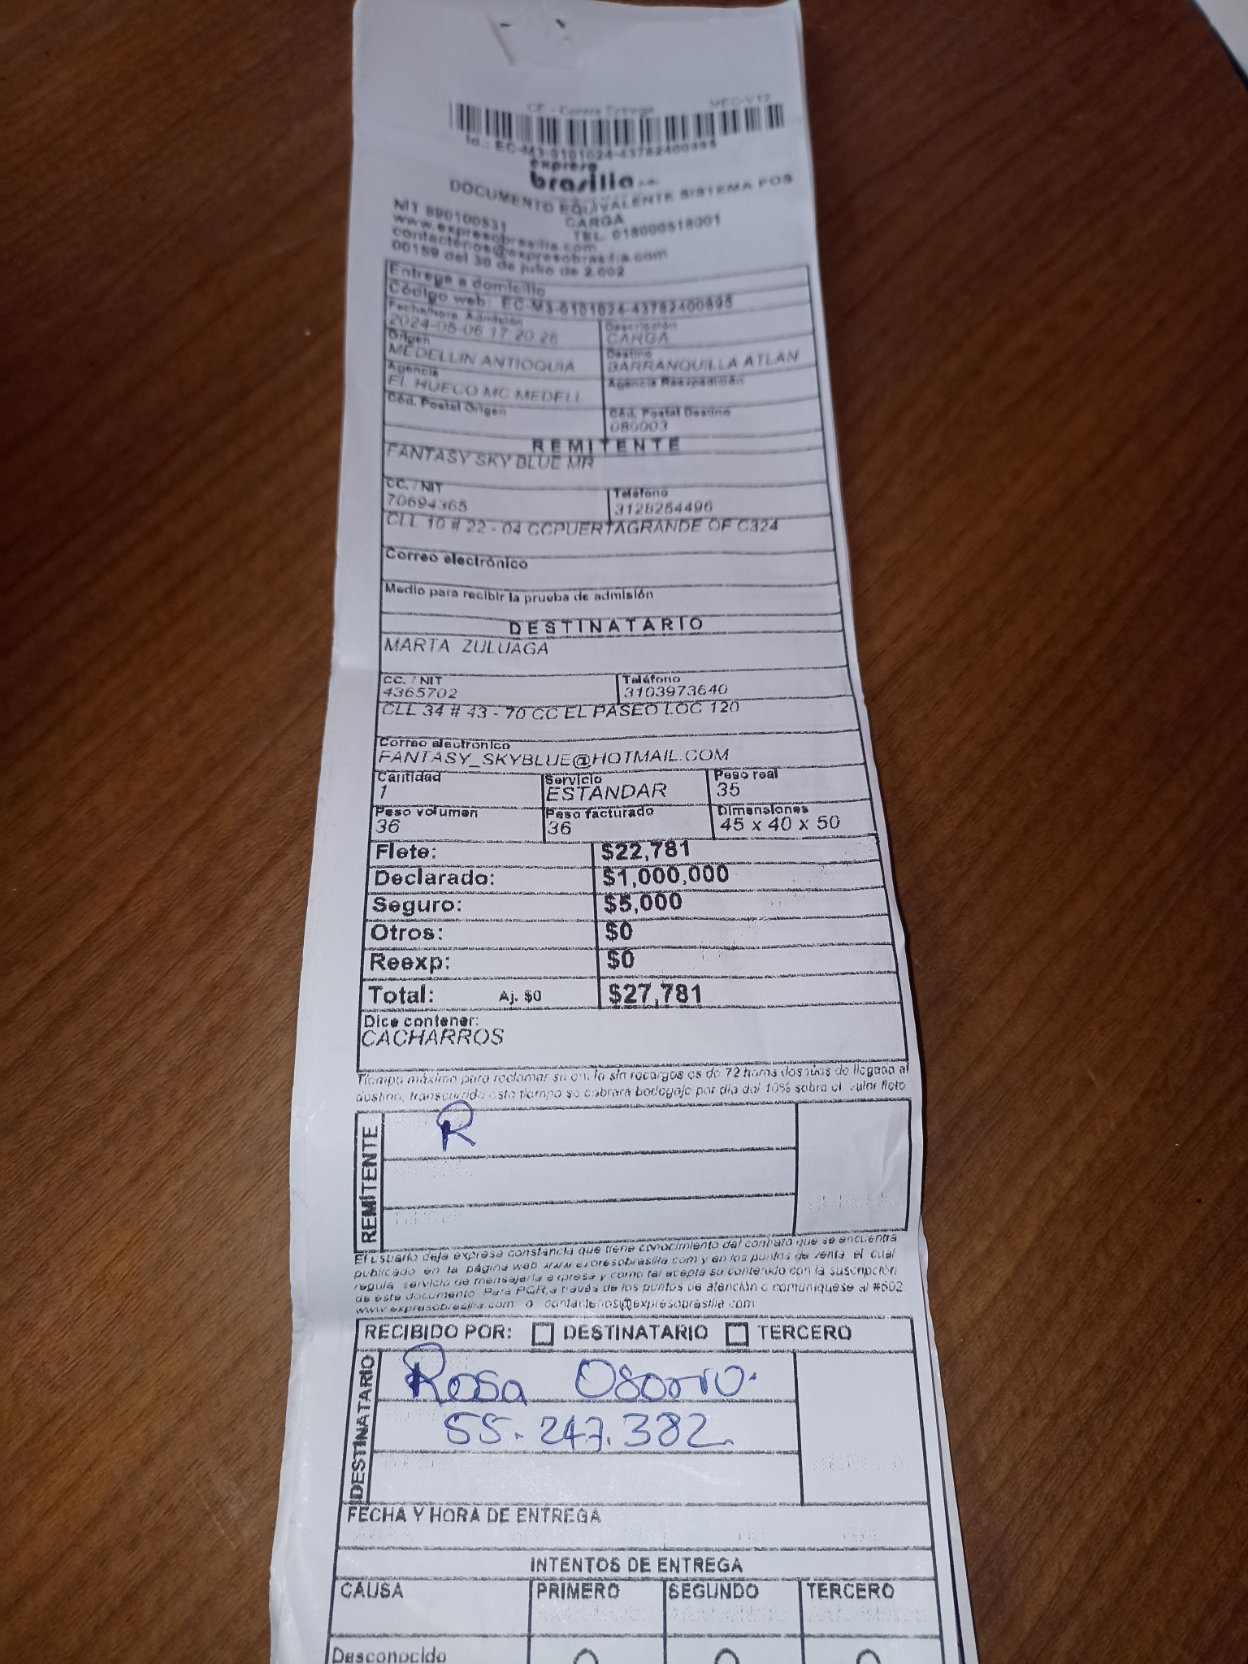 CE - Contra Entrega
Id.: EC-M3-0101024-43782400895
expreso
brasilia
DOCUMENTO EQUIVALENTE SISTEMA POS
CARGA
NIT 890100531
TEL. 018000518001
www.expresobrasilia.com
contactenos@expresobrasilia.com
00159 del 30 de julio de 2.002
Entrega a domicilio
Código web: EC-M3-0101024-43782400895
Fecha/hora Admisión
2024-05-06 17:20:26
Descripción
CARGA
Origen
MEDELLIN ANTIOQUIA
Destino
BARRANQUILLA ATLAN
Agencia
EL HUECO MC MEDELL
Agencia Reexpedición
Cód. Postal Origen
Cód. Postal Destino
080003
REMITENTE
FANTASY SKY BLUE MR
CC. / NIT
70694365
Teléfono
3128254496
CLL 10 # 22 - 04 CCPUERTAGRANDE OF C324
Correo electrónico
Medio para recibir la prueba de admisión
DESTINATARIO
MARTA ZULUAGA
CC. / NIT
4365702
Teléfono
3103973640
CLL 34 # 43 - 70 CC EL PASEO LOC 120
Correo electrónico
FANTASY_SKYBLUE@HOTMAIL.COM
Cantidad
1
Servicio
ESTANDAR
Peso real
35
Peso volumen
36
Peso facturado
36
Dimensiones
45 x 40 x 50
Flete: $22,781
Declarado: $1,000,000
Seguro: $5,000
Otros: $0
Reexp: $0
Total: Aj. $0 $27,781
Dice contener:
CACHARROS
Tiempo máximo para reclamar su envío sin recargos es de 72 horas después de llegado al
destino, transcurrido este tiempo se cobrará bodegaje por día del 10% sobre el valor flete
REMITENTE
R
El usuario deja expresa constancia que tiene conocimiento del contrato que se encuentra
publicado en la página web www.expresobrasilia.com y en los puntos de venta, el cual
regula servicio de mensajería expresa y como tal acepta su contenido con la suscripción
de este documento. Para PQR a través de los puntos de atención o comuniquese al #502
www.expresobrasilia.com o contactenos@expresobrasilia.com
RECIBIDO POR: DESTINATARIO TERCERO
DESTINATARIO
Rosa Osorio.
55.247.382
FECHA Y HORA DE ENTREGA
INTENTOS DE ENTREGA
CAUSA PRIMERO SEGUNDO TERCERO
Desconocido